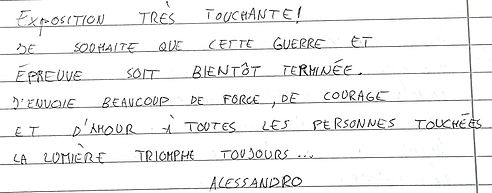 EXPOSITION TRÈS TOUCHANTE!
JE SOUHAITE QUE CETTE GUERRE ET
ÉPREUVE SOIT BIENTÔT TERMINÉE.
J'ENVOIE BEAUCOUP DE FORCE, DE COURAGE
ET D'AMOUR À TOUTES LES PERSONNES TOUCHÉES
LA LUMIÈRE TRIOMPHE TOUJOURS...
ALESSANDRO